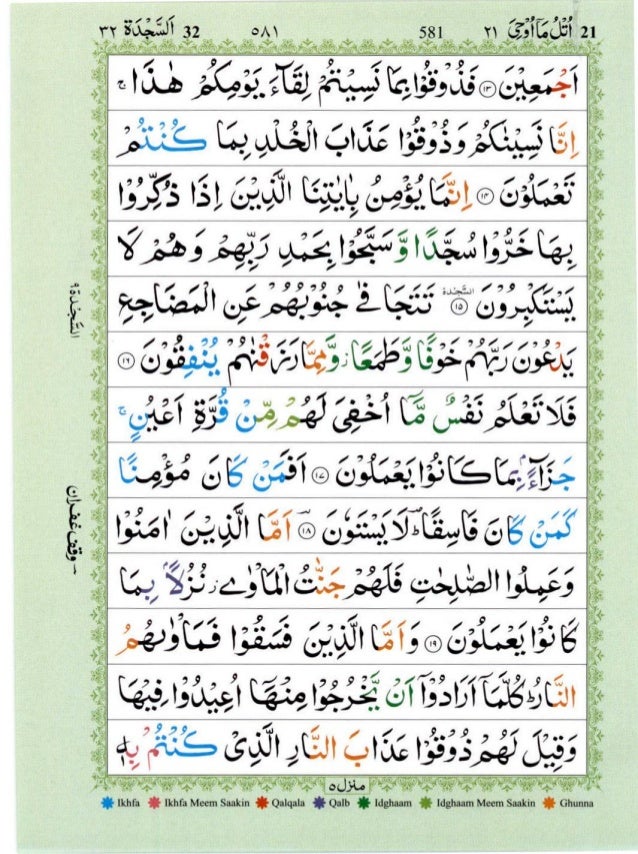 ٣٢ اَلسَّجْدَة 32 ٥٨١ 581 ٢١ اُتْلُ مَآ اُوْحِيَ 21
اَجْمَعِيْنَ ۝١٣ فَذُوْقُوْا بِمَا نَسِيْتُمْ لِقَآءَ يَوْمِكُمْ هٰذَا ۚ
اِنَّا نَسِيْنٰكُمْ وَذُوْقُوْا عَذَابَ الْخُلْدِ بِمَا كُنْتُمْ
تَعْمَلُوْنَ ۝١٤ اِنَّمَا يُؤْمِنُ بِاٰيٰتِنَا الَّذِيْنَ اِذَا ذُكِّرُوْا
بِهَا خَرُّوْا سُجَّدًا وَّسَبَّحُوْا بِحَمْدِ رَبِّهِمْ وَهُمْ لَا
يَسْتَكْبِرُوْنَ ۝١٥ السجدة تَتَجَافٰى جُنُوْبُهُمْ عَنِ الْمَضَاجِعِ
يَدْعُوْنَ رَبَّهُمْ خَوْفًا وَّطَمَعًا ز وَّمِمَّا رَزَقْنٰهُمْ يُنْفِقُوْنَ ۝١٦
فَلَا تَعْلَمُ نَفْسٌ مَّآ اُخْفِيَ لَهُمْ مِّنْ قُرَّةِ اَعْيُنٍ ۚ
جَزَآءًۢ بِمَا كَانُوْا يَعْمَلُوْنَ ۝١٧ اَفَمَنْ كَانَ مُؤْمِنًا
كَمَنْ كَانَ فَاسِقًا ؕ لَا يَسْتَوٗنَ ۝١٨ اَمَّا الَّذِيْنَ اٰمَنُوْا
وَعَمِلُوا الصّٰلِحٰتِ فَلَهُمْ جَنّٰتُ الْمَاْوٰى ز نُزُلًاۢ بِمَا
كَانُوْا يَعْمَلُوْنَ ۝١٩ وَاَمَّا الَّذِيْنَ فَسَقُوْا فَمَاْوٰىهُمُ
النَّارُ ؕ كُلَّمَآ اَرَادُوْٓا اَنْ يَّخْرُجُوْا مِنْهَآ اُعِيْدُوْا فِيْهَا
وَقِيْلَ لَهُمْ ذُوْقُوْا عَذَابَ النَّارِ الَّذِيْ كُنْتُمْ بِهٖ
السَّجْدَة ٩
وقف غفران
منزل ٥
Ikhfa Ikhfa Meem Saakin Qalqala Qalb Idghaam Idghaam Meem Saakin Ghunna